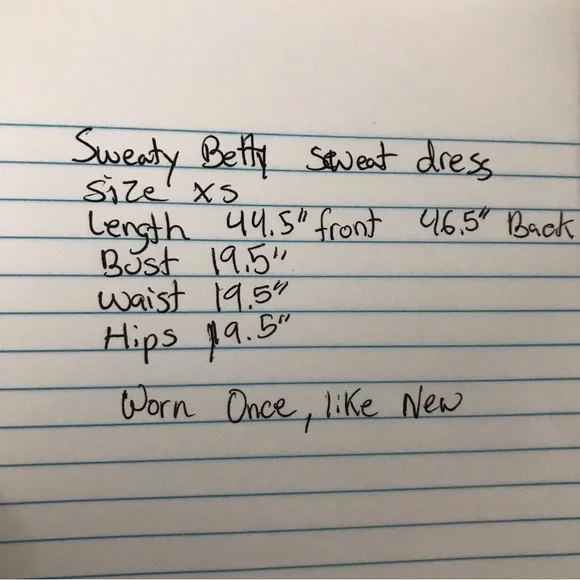 Sweaty Betty sweat dress
Size XS
Length 44.5" front 46.5" Back
Bust 19.5"
Waist 19.5"
Hips 19.5"
Worn Once, like New